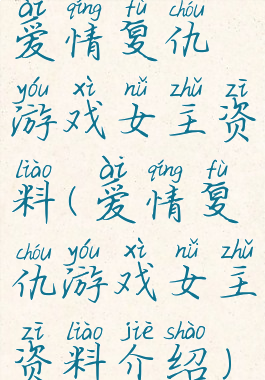 ài qíng fù chóu
爱情复仇
yóu xì nǚ zhǔ zī
游戏女主资
liào ài qíng fù
料(爱情复
chóu yóu xì nǚ zhǔ
仇游戏女主
zī liào jiè shào
资料介绍)